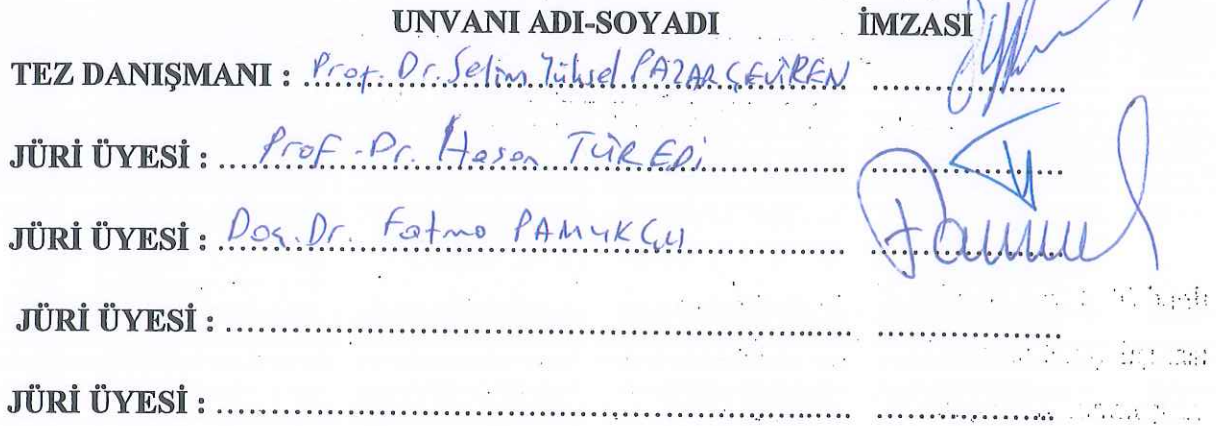 UNVANI ADI-SOYADI İMZASI
TEZ DANIŞMANI : Prof. Dr. Selim Yüksel PAZARÇEVİREN
JÜRİ ÜYESİ : Prof. Dr. Hasan TÜREDİ
JÜRİ ÜYESİ : Doç. Dr. Fatma PAMUKÇU
JÜRİ ÜYESİ :
JÜRİ ÜYESİ :